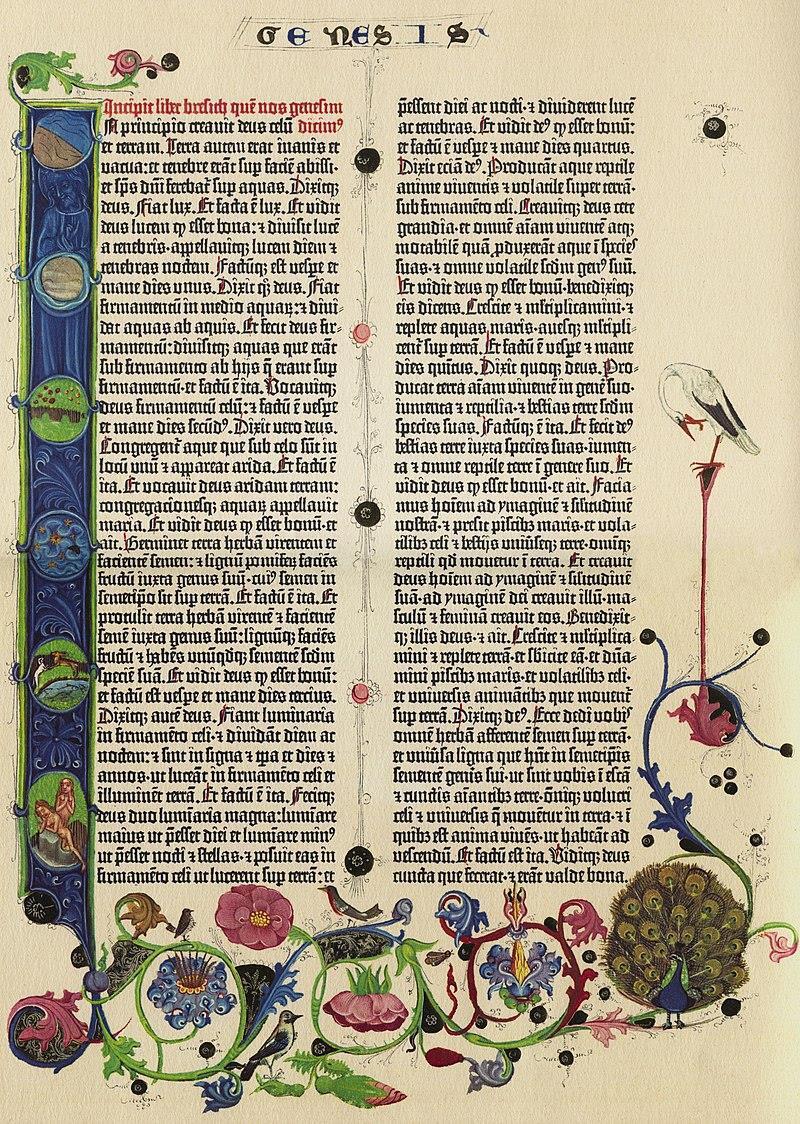 GENESIS
Incipit liber bresich quē nos genesim
dicim⁹
IN principio creauit deus celū
et terram. Terra autem erat inanis et
vacua: et tenebre erāt sup faciē abissi:
et sp̄s dn̄i ferebat᷑ sup aquas. Dixitq;
deus. Fiat lux. Et facta ē lux. Et vidit
deus lucem q esset bona: ⁊ diuisit lucē
a tenebris· appellauitq; lucem diem ⁊
tenebras noctem. Factūq; est vespe et
mane dies vnus. Dixit q̄; deus. Fiat
firmamentū in medio aquaꝝ: ⁊ diui-
dat aquas ab aquis. Et fecit deus fir-
mamentū: diuisitq; aquas que erāt
sub firmamento ab hijs q̄ erant sup
firmamentū· et factū ē ita. Vocauitq;
deus firmamentū celū: ⁊ factū ē vespe
et mane dies secūd⁹. Dixit vero deus.
Congregent᷑ aque que sub celo sūt in
locū vnū ⁊ appareat arida. Et factū ē
ita. Et vocauit deus aridam terram:
congregacionesq; aquaꝝ appellauit
maria. Et vidit deus q esset bonū· et
ait. Germinet terra herbā virentem et
facientē semen: ⁊ lignū pomiferū faciēs
fructū iuxta genus suū· cui⁹ semen in
semetipo sit sup terrā. Et factū ē ita. Et
protulit terra herbā virentē ⁊ facientē
semē iuxta genus suū: lignūq; faciēs
fructū ⁊ habēs vnūqdq; sementē scdm
speciē suā. Et vidit deus q esset bonū:
et factū est vespe et mane dies tercius.
Dixitq; autē deus. Fiant luminaria
in firmamēto celi· ⁊ diuidāt diem ac
noctem: ⁊ sint in signa ⁊ tp̄a et dies ⁊
annos· ut luceāt in firmamēto celi et
illuminēt terrā. Et factū ē ita. Fecitq;
deus duo luminaria magna: luminare
maius ut p̄esset diei et luminare min⁹
ut p̄esset nocti ⁊ stellas· ⁊ posuit eas in
firmamēto celi ut lucerent sup terrā: et
p̄essent diei ac nocti· ⁊ diuiderent lucē
ac tenebras. Et vidit de⁹ q esset bonū:
et factū ē vespe ⁊ mane dies quartus.
Dixit eciā de⁹. Producāt aque reptile
anime viuentis ⁊ volatile super terrā·
sub firmamēto celi. Creauitq; deus cete
grandia· et omnē aīam viuentē atq;
motabilē quā pduxerāt aque ī species
suas· ⁊ omne volatile scdm gen⁹ suū.
Et vidit deus q esset bonū· benedixitq;
eis dicens. Crescite ⁊ mltiplicamini· ⁊
replete aquas maris· auesq; mltipli-
cent᷑ sup terrā. Et factū ē vespe ⁊ mane
dies quītus. Dixit quoq; deus. Pro-
ducat terra aīam viuentē in genē suo·
iumenta ⁊ reptilia· ⁊ bestias terre scdm
species suas. Factūq; ē ita. Et fecit de⁹
bestias terre iuxta species suas· iumen-
ta ⁊ omne reptile terre ī genere suo. Et
vidit deus q esset bonū· et ait. Facia-
mus hoīem ad ymaginē ⁊ silitudinē
nostrā· ⁊ presit piscibꝫ maris· et vola-
tilibꝫ celi ⁊ bestijs vniūseq; terre· omniq;
reptili qd mouetur ī terra. Et creauit
deus hoīem ad ymaginē ⁊ silitudinē
suā· ad ymaginē dei creauit illū· ma-
sculū ⁊ feminā creauit eos. Benedixit-
q; illis deus· ⁊ ait. Crescite ⁊ mltiplica-
mini ⁊ replete terrā· et sbicite eā· et dn̄a-
mini piscibꝫ maris· et volatilibꝫ celi·
et vniuersis animātibꝫ que mouent᷑
sup terrā. Dixitq; de⁹. Ecce dedi vobis
omnē herbam afferentē semen sup terrā·
et vniūsa ligna que hn̄t in semetipsis
sementē genis sui· ut sint vobis ī escā
⁊ cunctis aīantibꝫ terre· omniq; volucri
celi ⁊ vniuersis q̄ mouētur in terra· ⁊ ī
quibꝫ est anima viuēs· ut habeāt ad
vescendū. Et factū est ita. Viditq; deus
cuncta que fecerat· ⁊ erāt valde bona.